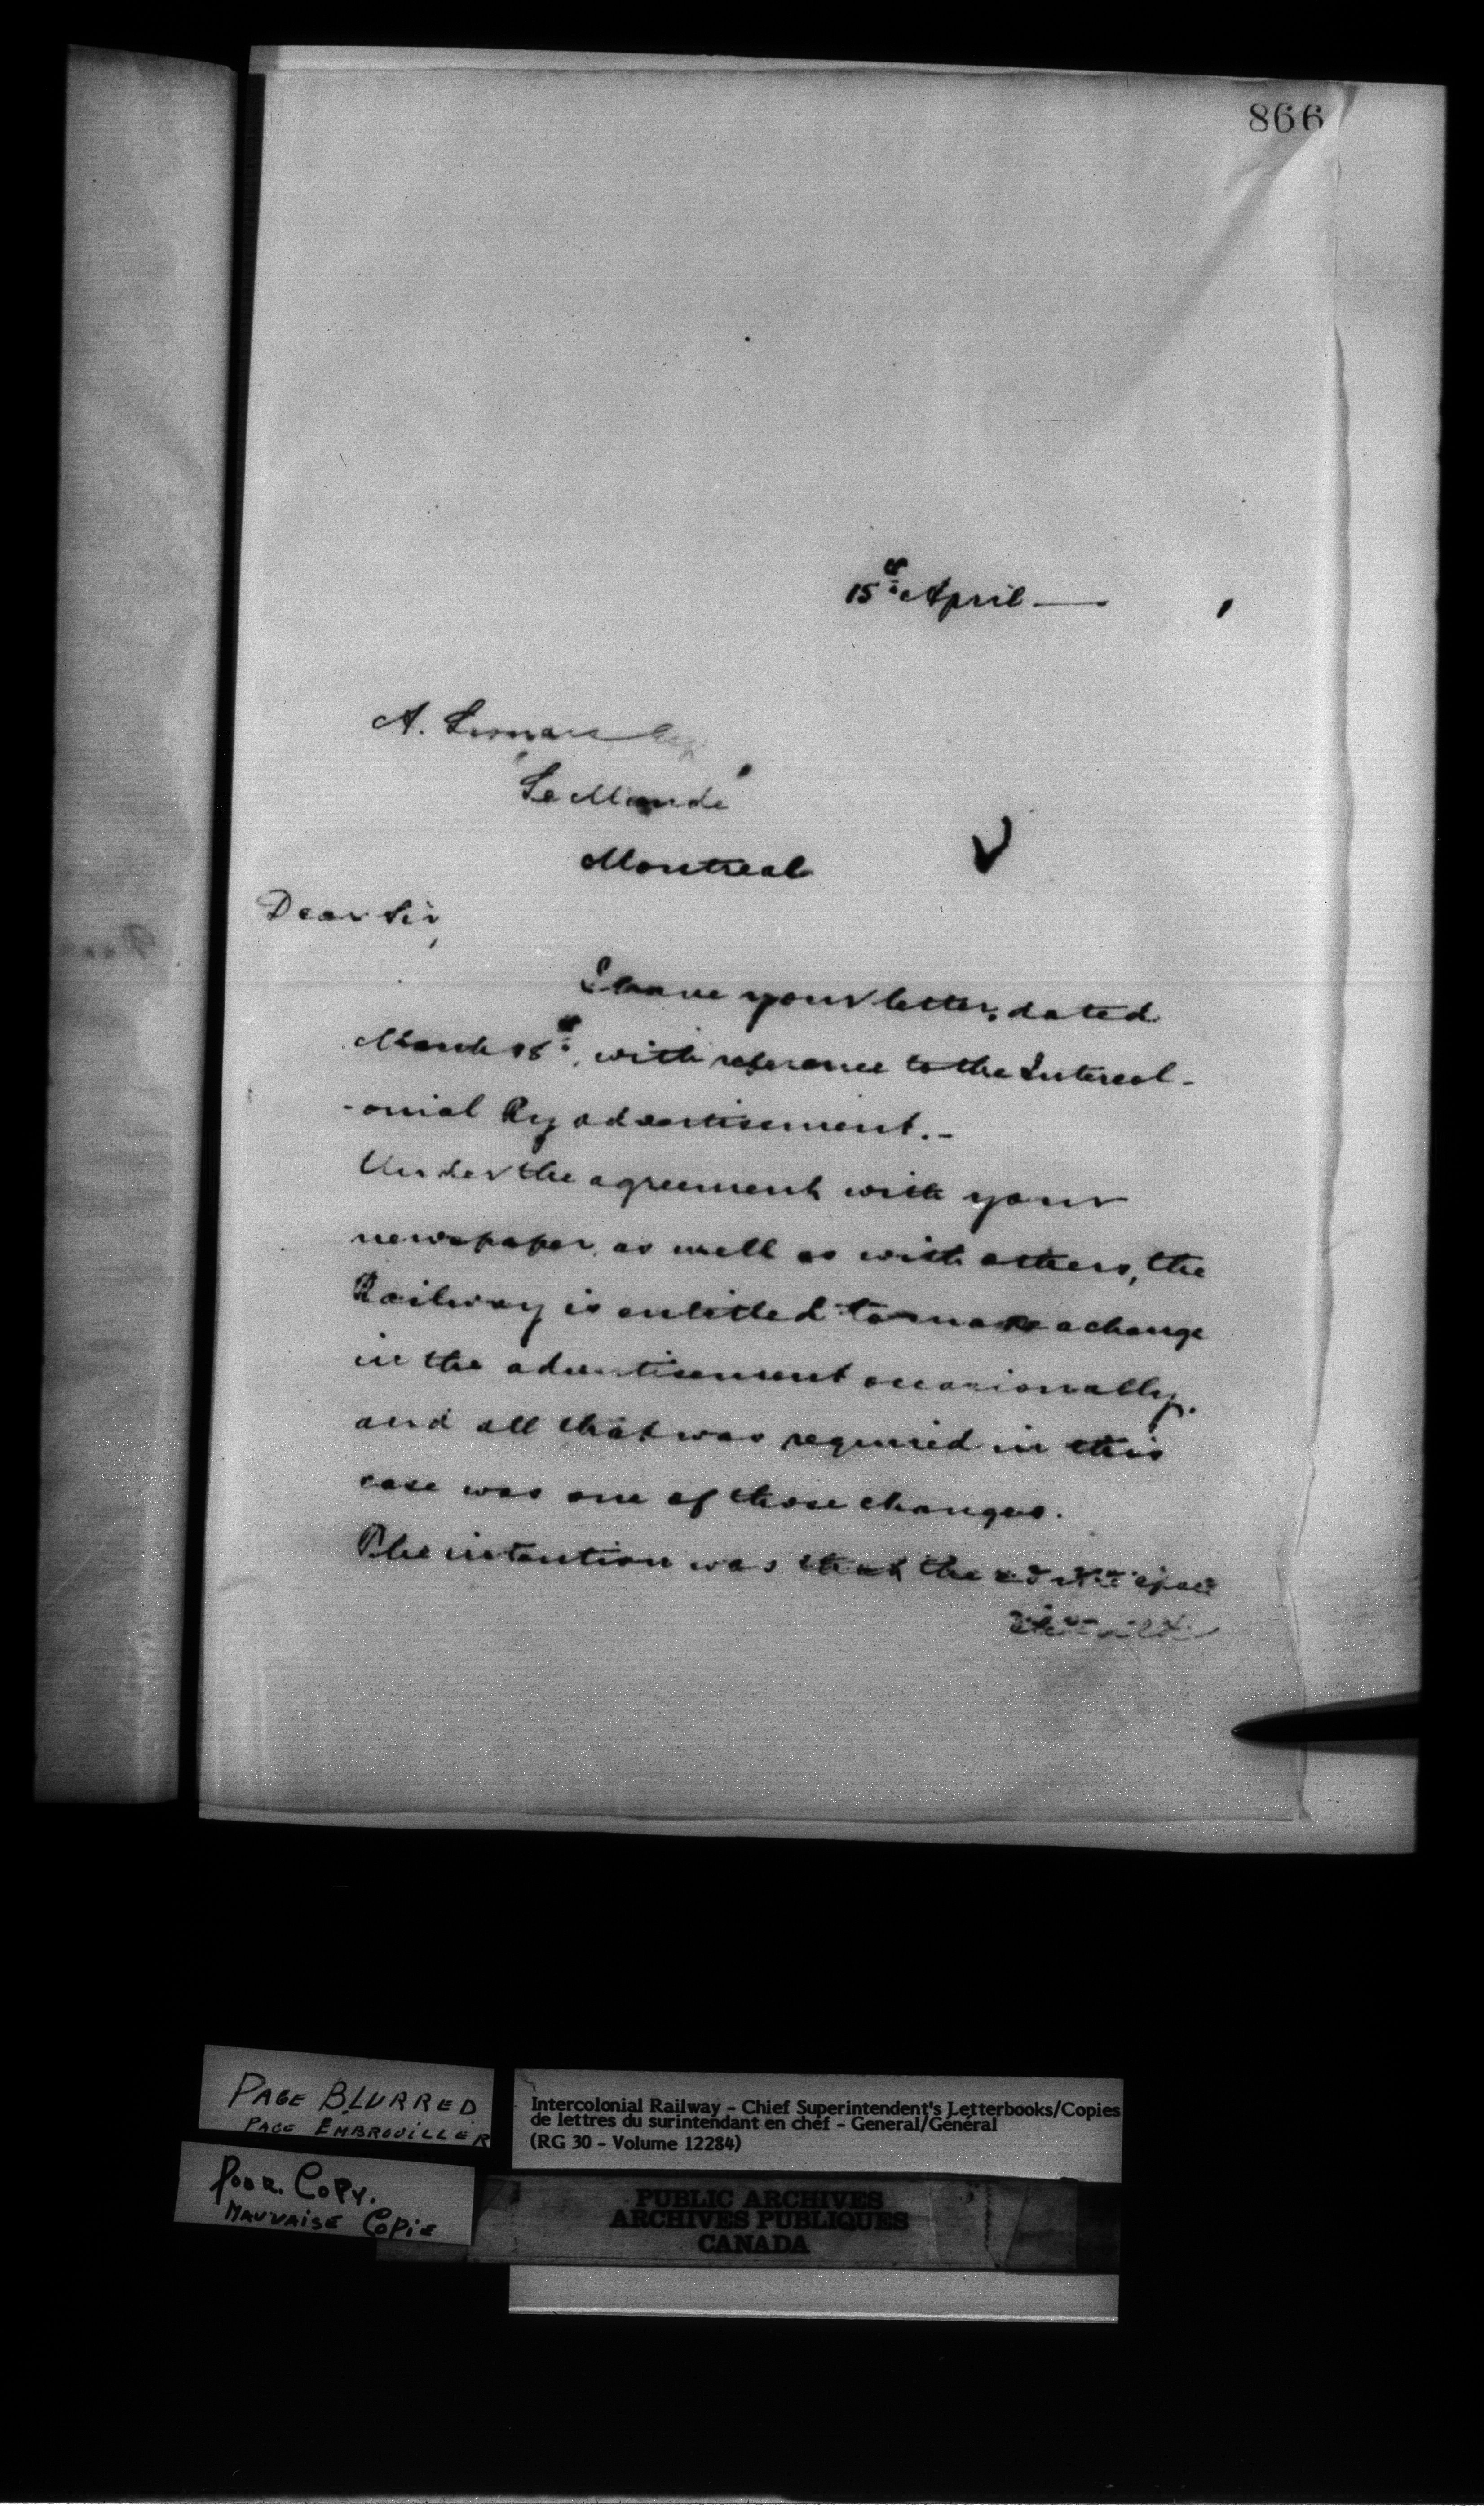 866
15th April —
A.
"Le Monde"
Montreal
Dear Sir,
I have your letter, dated
March, with reference to the Intercol-
-onial Ry advertisement.-
Under the agreement with your
newspaper, as well as with others, the
Railway is entitled to make a change
in the advertisement occasionally,
and all that was required in this
case was one of those changes.
The intention was that the
PAGE BLURRED
PAGE EMBROUILLER
POOR COPY.
MAUVAISE COPIE
Intercolonial Railway - Chief Superintendent's Letterbooks/Copies
de lettres du surintendant en chef - General/Général
(RG 30 - Volume 12284)
PUBLIC ARCHIVES
ARCHIVES PUBLIQUES
CANADA